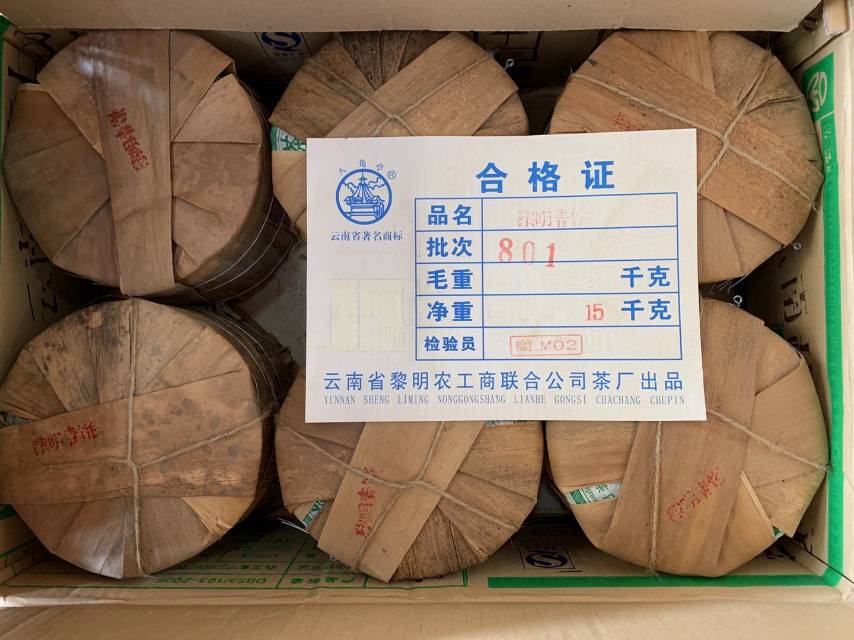 八角亭
®
云南省著名商标
合格证
品名 黎明青饼
批次 801
毛重 千克
净重 15 千克
检验员 检LM02
云南省黎明农工商联合公司茶厂出品
YUNNAN SHENG LIMING NONGGONGSHANG LIANHE GONGSI CHACHANG CHUPIN
DB53/103-2006